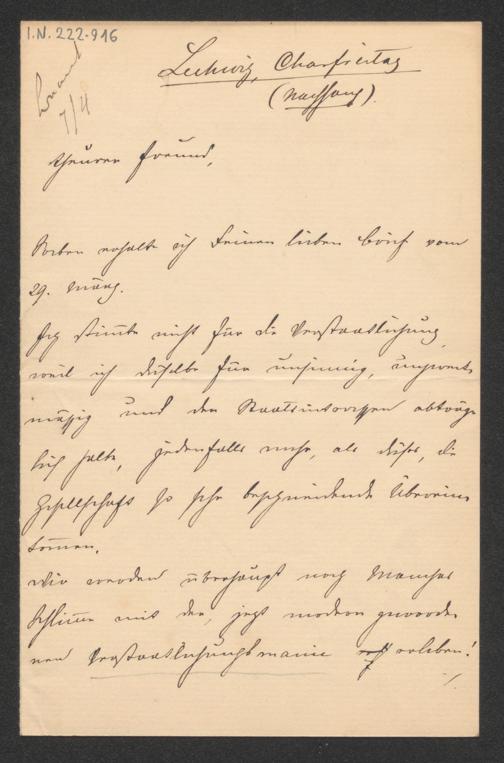 I.N. 222.916
7/4
Ludwig, Charfreitag
(Nachhang).
Theurer Freund,
Soeben erhalte ich Deinen lieben Brief vom
29. März.
Ich stimmte nicht für die Verstaatlichung,
weil ich dieselbe für unsinnig, unzweck-
mäßig und den Staatsinteressen abträg-
lich halte, jedenfalls mehr, als dieses, die
Gesellschaft so sehr beschneidende Überein-
kommen.
Wir werden überhaupt noch Manches
Schlimme mit der, jetzt modern geworde-
nen Verstaatlichungsmanie erleben!
./.